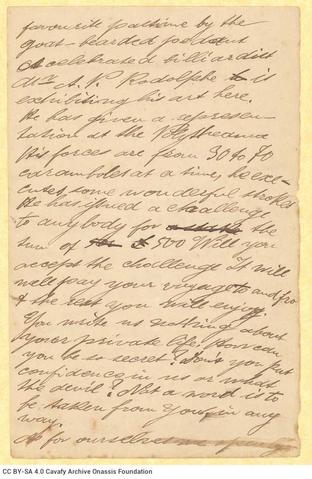 favourite pastime by the
goat-bearded
A celebrated billiardist
Mr A. P. Rodolphe is
exhibiting his art here.
He has given a represen-
tation at the
His forces are from 30 to 70
caramboles at a time, he exe-
cutes some wonderful strokes
He has issued a challenge
to anybody for the
sum of £500 Will you
accept the challenge It will
well pay your voyage to and fro
& the rest you will enjoy.
You write us nothing about
your private life. How can
you be so secret? Don't you put
confidence in us or what
the devil? Not a word is to
be taken from you in any
way.
As for ourselves
CC BY-SA 4.0 Cavafy Archive Onassis Foundation